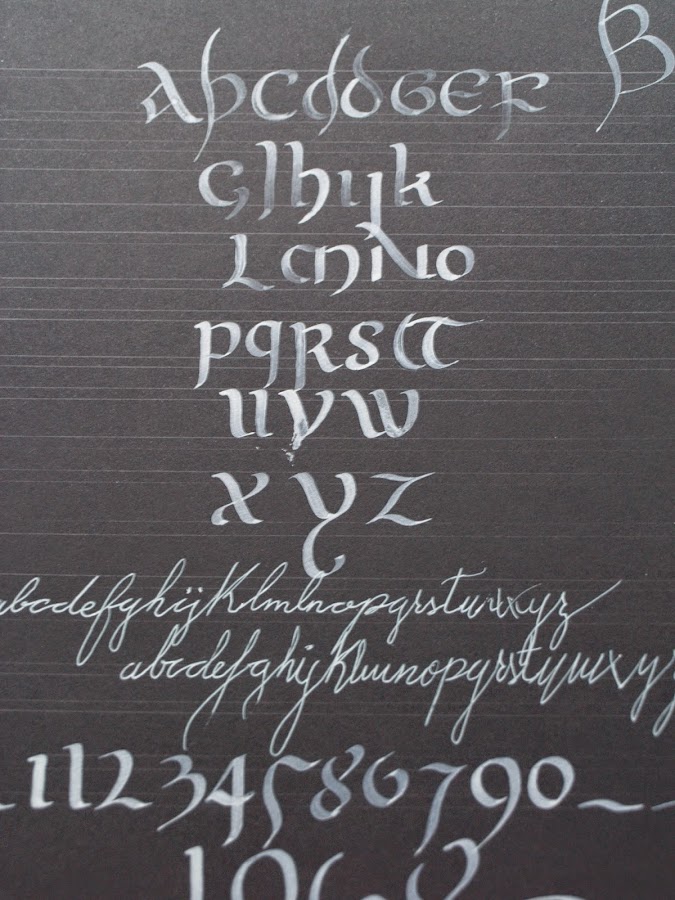 AbCddGEF B
GlhijK
LmNo
pqRstT
uvw
xyz
abcdefghijklmlnopqrstuvxyz
abcdefghijklmnopqrstuvwxyz
11234586790